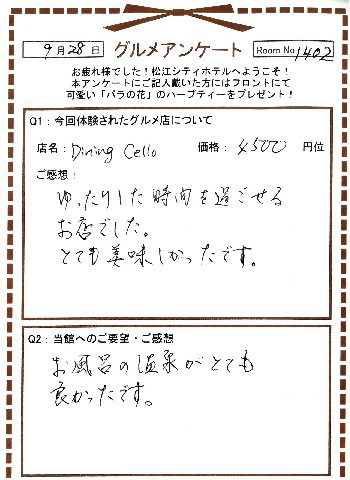 9月28日 グルメアンケート Room No. 1402
お疲れ様でした！松江シティホテルへようこそ！
本アンケートにご記入戴いた方にはフロントにて
可愛い「バラの花」のハーブティーをプレゼント！
Q1：今回体験されたグルメ店について
店名： Dining Cello 価格： 4500 円位
ご感想：
ゆったりした時間を過ごせる
お店でした。
とても美味しかったです。
Q2：当館へのご要望・ご感想
お風呂の温泉がとても
良かったです。